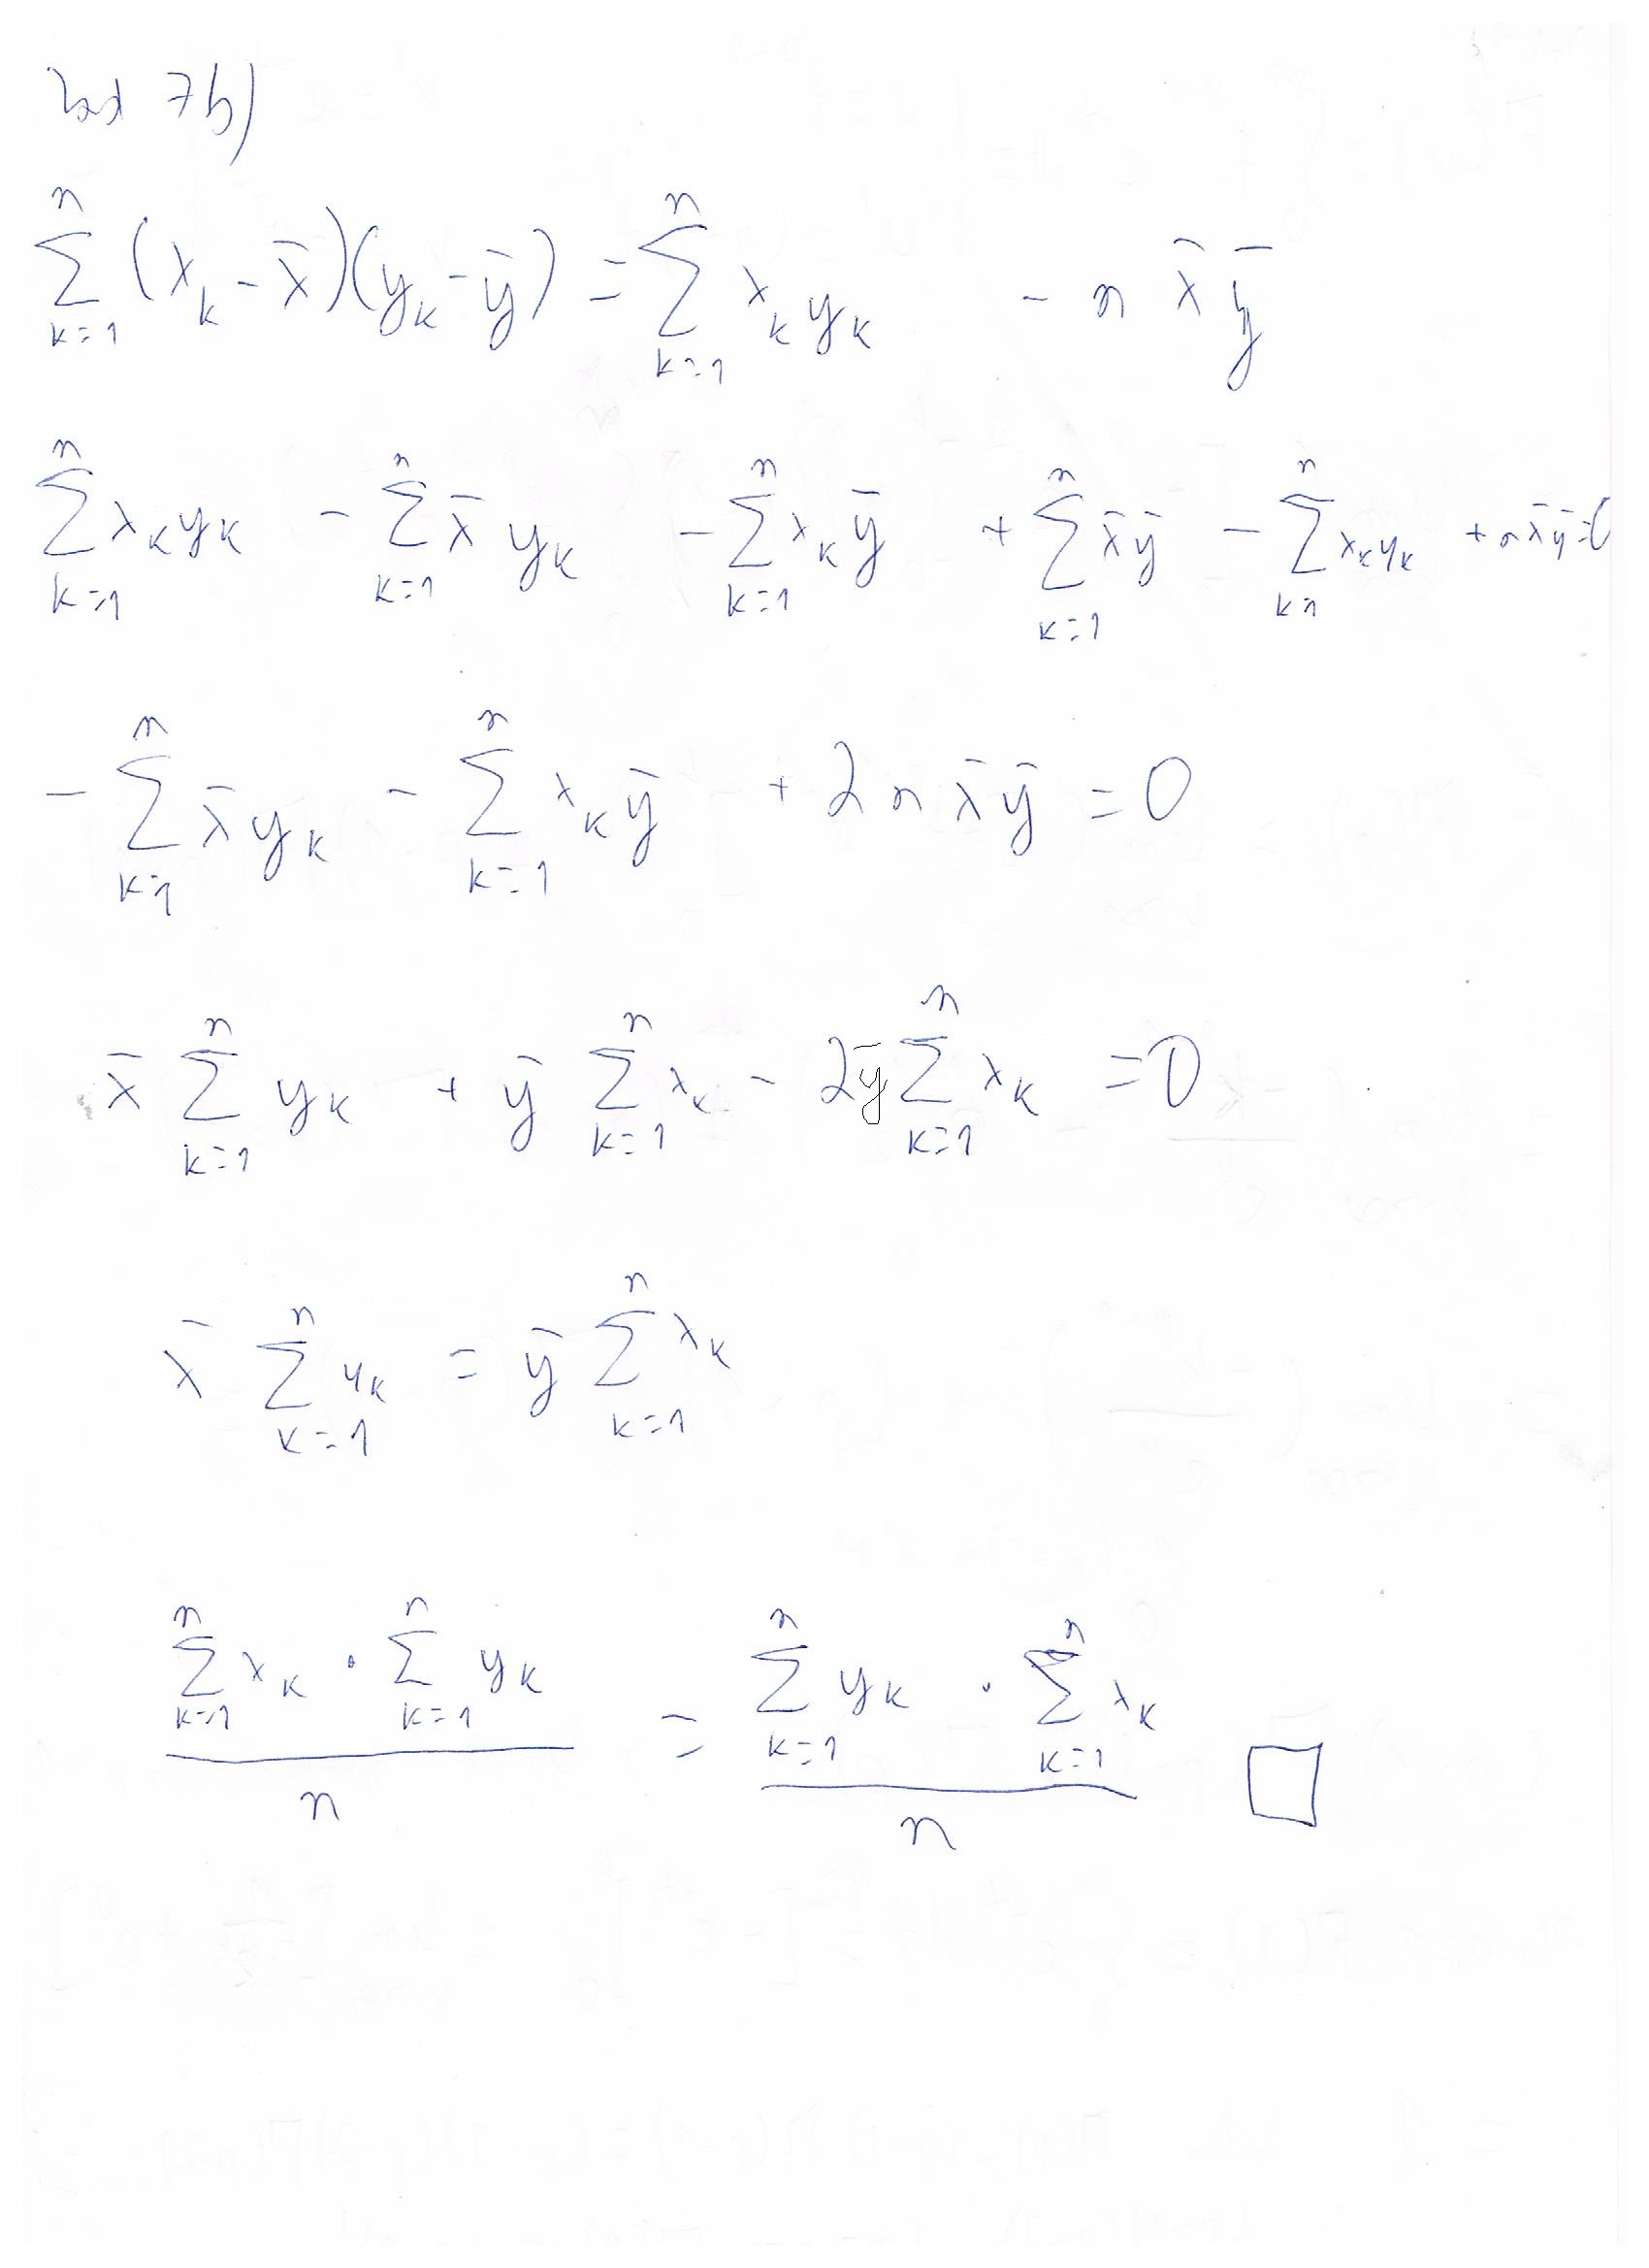 zad 7b)
\sum_{k=1}^{n} (x_k - \bar{x})(y_k - \bar{y}) = \sum_{k=1}^{n} x_k y_k - n \bar{x} \bar{y}
\sum_{k=1}^{n} x_k y_k - \sum_{k=1}^{n} \bar{x} y_k - \sum_{k=1}^{n} x_k \bar{y} + \sum_{k=1}^{n} \bar{x} \bar{y} - \sum_{k=1}^{n} x_k y_k + n \bar{x} \bar{y} = 0
- \sum_{k=1}^{n} \bar{x} y_k - \sum_{k=1}^{n} x_k \bar{y} + 2 n \bar{x} \bar{y} = 0
\bar{x} \sum_{k=1}^{n} y_k + \bar{y} \sum_{k=1}^{n} x_k - 2 \bar{y} \sum_{k=1}^{n} x_k = 0
\bar{x} \sum_{k=1}^{n} y_k = \bar{y} \sum_{k=1}^{n} x_k
\frac{\sum_{k=1}^{n} x_k \cdot \sum_{k=1}^{n} y_k}{n} = \frac{\sum_{k=1}^{n} y_k \cdot \sum_{k=1}^{n} x_k}{n} □